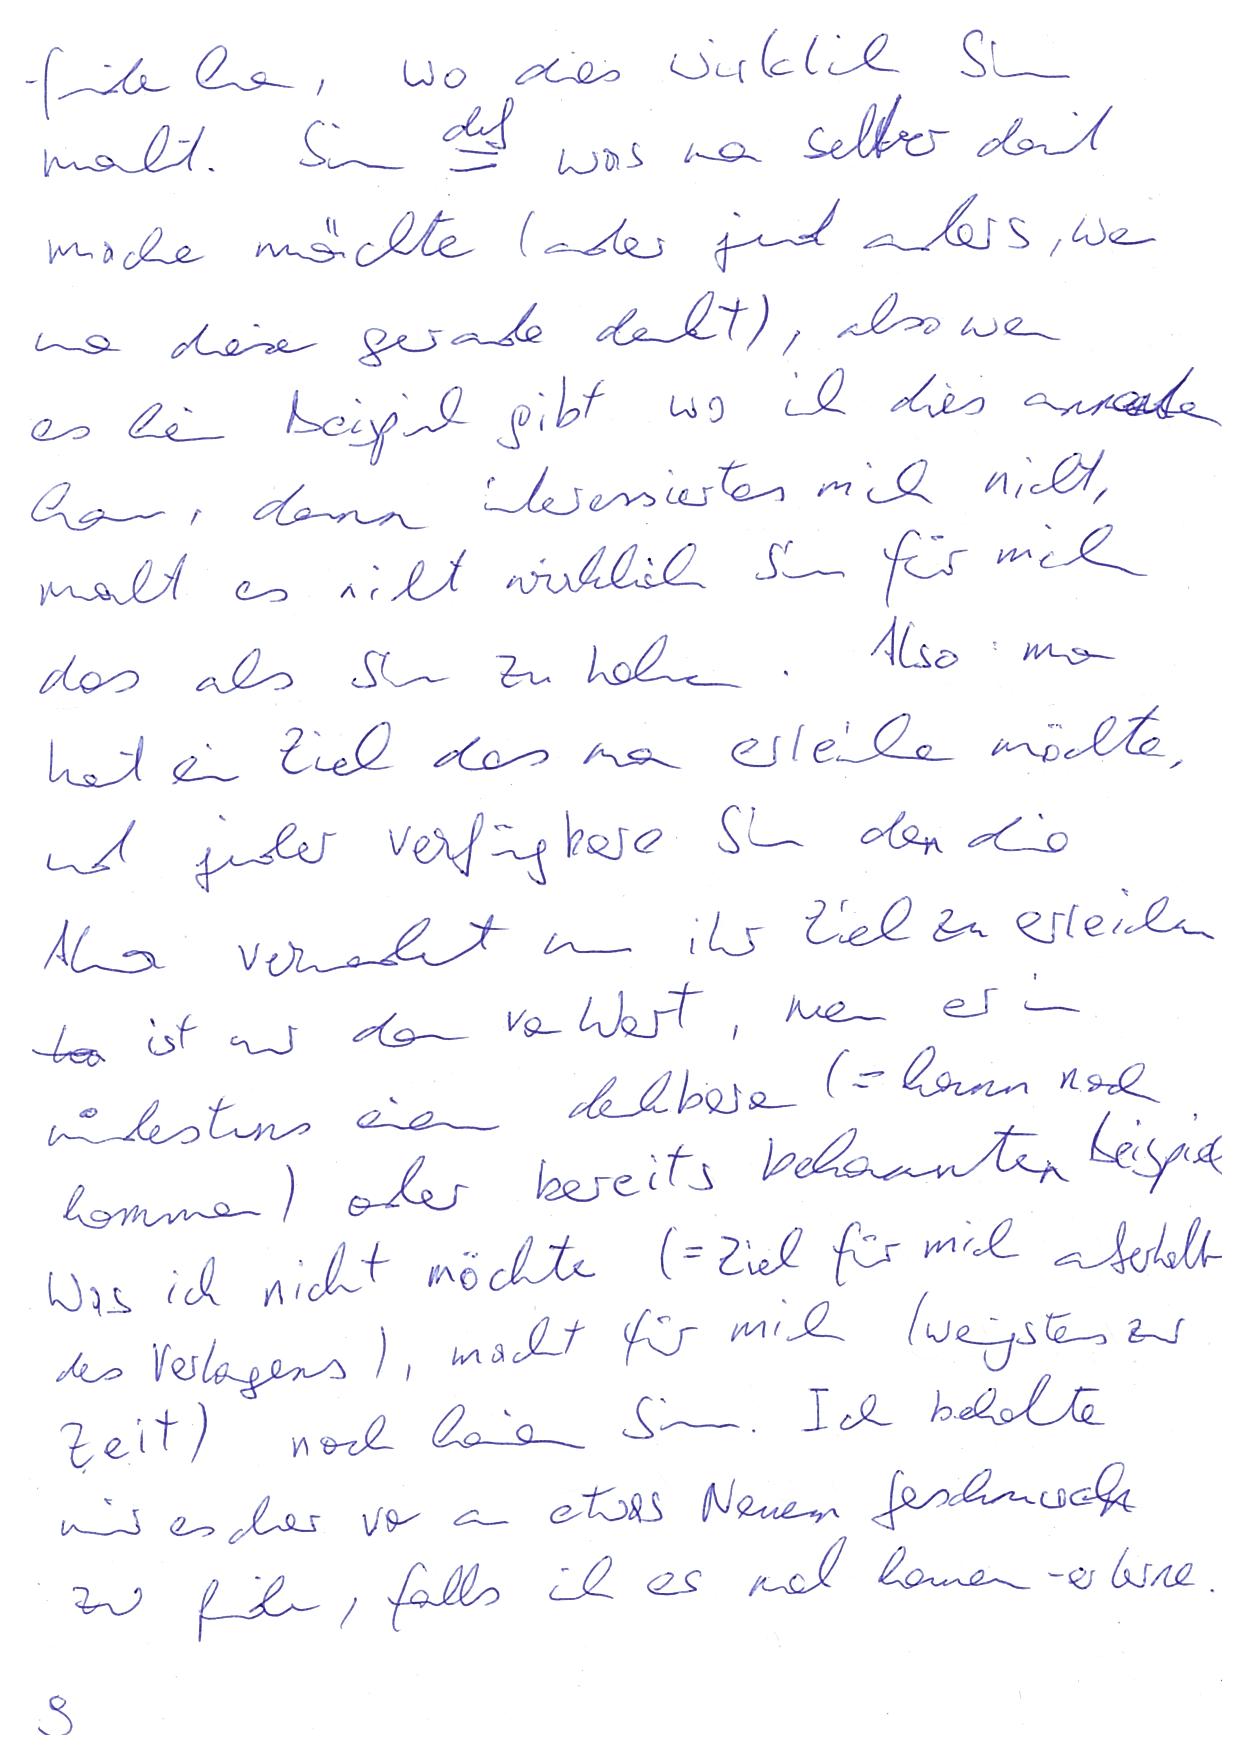 finden kann, wo dies wirklich Sinn
macht. Sinn def = was man selber damit
machen möchte (oder jemand anders, wenn
man diesen gerade denkt), also wenn
es kein Beispiel gibt wo ich dies anwenden
kann, dann interessiert es mich nicht,
macht es nicht wirklich Sinn für mich
das als Sinn zu haben. Also: man
hat ein Ziel das man erreichen möchte,
und jeder verfügbare Sinn den die
verwendet um ihr Ziel zu erreichen
ist nur dann von Wert, wenn er in
mindestens einem denkbaren (= kann noch
kommen) oder bereits bekannten Beispiel
Was ich nicht möchte (= Ziel für mich außerhalb
des Verlangens), macht für mich (wenigstens zur
Zeit) noch keinen Sinn. Ich behalte
mir es aber vor an etwas Neuem Geschmack
zu finden, falls ich es mal kennen-erlerne.
9